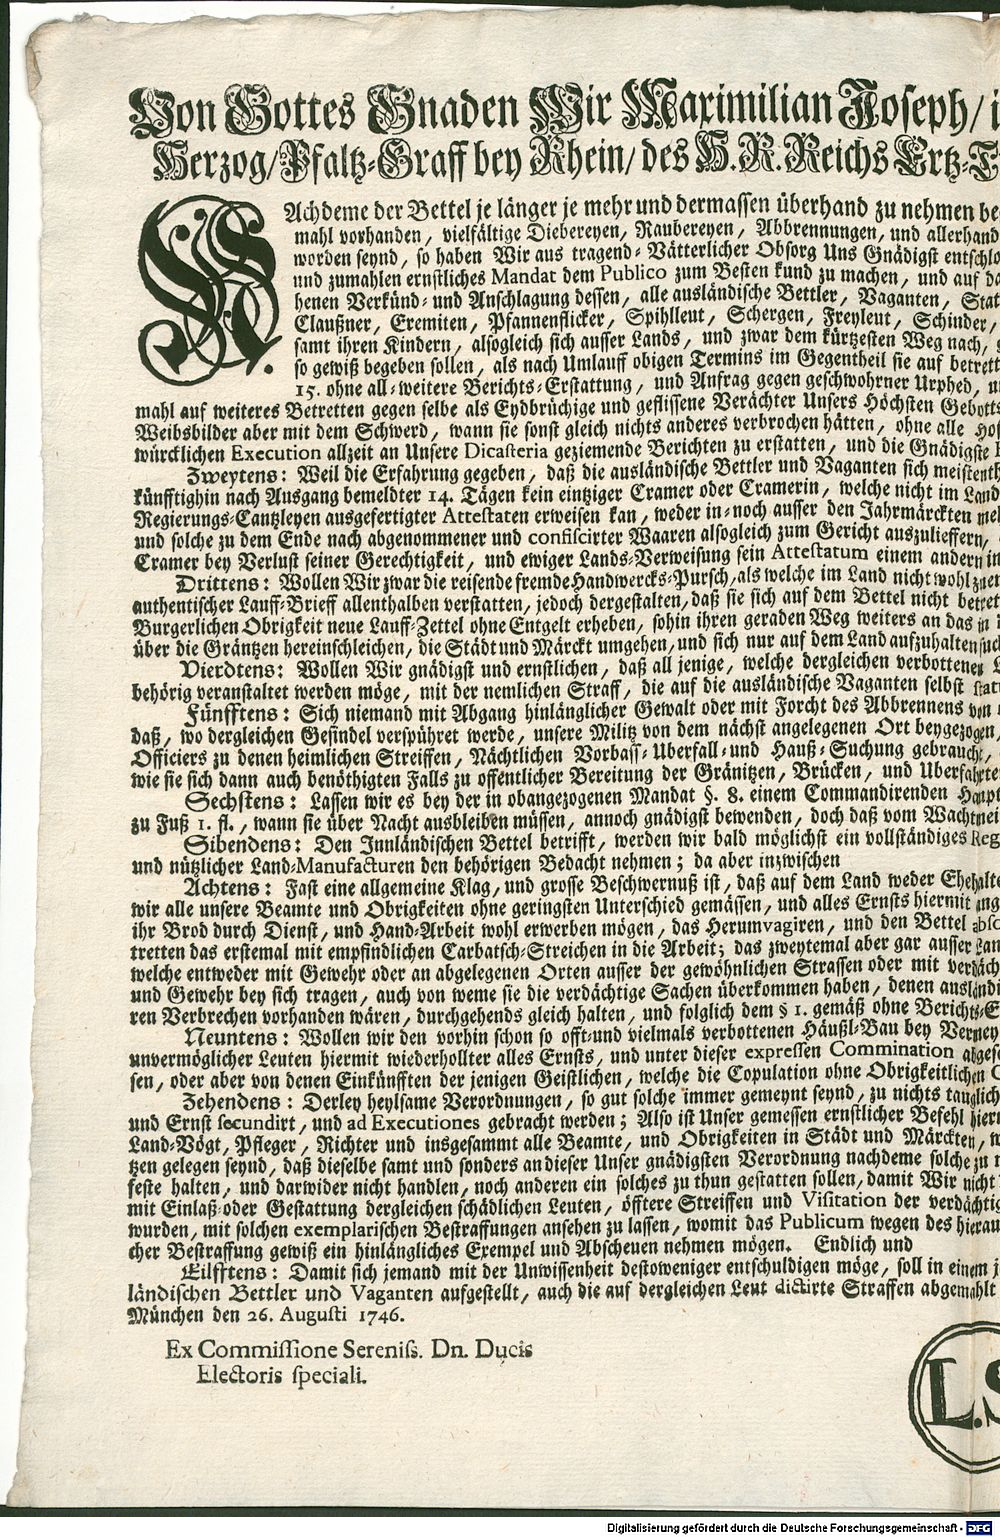 Von Gottes Gnaden Wir Maximilian Joseph/ i
Herzog/ Pfaltz-Graff bey Rhein/ des H. R. Reichs Ertz-T
NAchdeme der Bettel je länger je mehr und dermassen überhand zu nehmen be
mahl vorhanden, vielfältige Diebereyen, Raubereyen, Abbrennungen, und allerhand
worden seynd, so haben Wir aus tragend-Vätterlicher Obsorg Uns Gnädigst entschlo
und zumahlen ernstliches Mandat dem Publico zum Besten kund zu machen, und auf da
henen Verkünd- und Anschlagung dessen, alle ausländische Bettler, Vaganten, Stat
Claußner, Eremiten, Pfannenflicker, Spihlleut, Schergen, Freyleut, Schinder,
samt ihren Kindern, alsogleich sich ausser Lands, und zwar dem kürtzesten Weg nach, g
so gewiß begeben sollen, als nach Umlauff obigen Termins im Gegentheil sie auf betrett
15. ohne all-weitere Berichts-Erstattung, und Anfrag gegen geschwohrner Urphed, u
mahl auf weiteres Betretten gegen selbe als Eydbrüchige und geflissene Verächter Unsers Höchsten Gebotts
Weibsbilder aber mit dem Schwerd, wann sie sonst gleich nichts anderes verbrochen hätten, ohne alle Hof
würcklichen Execution allzeit an Unsere Dicasteria geziemende Berichten zu erstatten, und die Gnädigste
Zweytens: Weil die Erfahrung gegeben, daß die ausländische Bettler und Vaganten sich meistenth
künfftighin nach Ausgang bemeldter 14. Tägen kein eintziger Cramer oder Cramerin, welche nicht im Land
Regierungs-Cantzleyen ausgefertigter Attestaten erweisen kan, weder in- noch ausser den Jahrmärckten meh
und solche zu dem Ende nach abgenommener und confiscirter Waaren alsogleich zum Gericht auszulieffern,
Cramer bey Verlust seiner Gerechtigkeit, und ewiger Lands-Verweisung sein Attestatum einem andern in
Drittens: Wollen Wir zwar die reisende fremde Handwercks-Pursch, als welche im Land nicht wohl zu en
authentischer Lauff-Brieff allenthalben verstatten, jedoch dergestalten, daß sie sich auf dem Bettel nicht betret
Burgerlichen Obrigkeit neue Lauff-Zettel ohne Entgelt erheben, sohin ihren geraden Weg weiters an das in
über die Gräntzen hereinschleichen, die Städt und Märckt umgehen, und sich nur auf dem Land aufzuhalten such
Vierdtens: Wollen Wir gnädigst und ernstlichen, daß all jenige, welche dergleichen verbottenen L
behörig veranstaltet werden möge, mit der nemlichen Straff, die auf die ausländische Vaganten selbst statu
Fünfftens: Sich niemand mit Abgang hinlänglicher Gewalt oder mit Forcht des Abbrennens von
daß, wo dergleichen Gesindel verspühret werde, unsere Militz von dem nächst angelegenen Ort beygezogen,
Officiers zu denen heimlichen Streiffen, Nächtlichen Vorbass-Uberfall- und Hauß-Suchung gebraucht,
wie sie sich dann auch benöthigten Falls zu offentlicher Bereitung der Gränitzen, Brücken, und Uberfahrten
Sechstens: Lassen wir es bey der in obangezogenen Mandat §. 8. einem Commandirenden Haupt
zu Fuß 1. fl., wann sie über Nacht ausbleiben müssen, annoch gnädigst bewenden, doch daß vom Wachtmei
Sibendens: Den Innländischen Bettel betrifft, werden wir bald möglichst ein vollständiges Reg
und nützlicher Land-Manufacturen den behörigen Bedacht nehmen; da aber inzwischen
Achtens: Fast eine allgemeine Klag, und grosse Beschwernuß ist, daß auf dem Land weder Ehehalte
wir alle unsere Beamte und Obrigkeiten ohne geringsten Unterschied gemässen, und alles Ernsts hiermit ang
ihr Brod durch Dienst, und Hand-Arbeit wohl erwerben mögen, das Herumvagiren, und den Bettel absc
tretten das erstemal mit empfindlichen Carbatsch-Streichen in die Arbeit; das zweytemal aber gar ausser Lan
welche entweder mit Gewehr oder an abgelegenen Orten ausser der gewöhnlichen Strassen oder mit verdäch
und Gewehr bey sich tragen, auch von weme sie die verdächtige Sachen überkommen haben, denen ausländi
ren Verbrechen vorhanden wären, durchgehends gleich halten, und folglich dem § 1. gemäß ohne Berichts-E
Neuntens: Wollen wir den vorhin schon so offt- und vielmals verbottenen Häußl-Bau bey Vermey
unvermöglicher Leuten hiermit wiederhollter alles Ernsts, und unter dieser expressen Commination abgesc
sen, oder aber von denen Einkünfften der jenigen Geistlichen, welche die Copulation ohne Obrigkeitlichen C
Zehendens: Derley heylsame Verordnungen, so gut solche immer gemeynt seynd, zu nichts tauglich
und Ernst secundirt, und ad Executiones gebracht werden; Also ist Unser gemessen ernstlicher Befehl hierm
Land-Vögt, Pfleger, Richter und insgesammt alle Beamte, und Obrigkeiten in Städt und Märckten, w
tzen gelegen seynd, daß dieselbe samt und sonders an dieser Unser gnädigsten Verordnung nachdeme solche zu
feste halten, und darwider nicht handlen, noch anderen ein solches zu thun gestatten sollen, damit Wir nicht
mit Einlaß- oder Gestattung dergleichen schädlichen Leuten, öfftere Streiffen und Visitation der verdächtig
wurden, mit solchen exemplarischen Bestraffungen ansehen zu lassen, womit das Publicum wegen des hierau
cher Bestraffung gewiß ein hinlängliches Exempel und Abscheuen nehmen mögen. Endlich und
Eilfftens: Damit sich jemand mit der Unwissenheit destoweniger entschuldigen möge, soll in einem j
ländischen Bettler und Vaganten aufgestellt, auch die auf dergleichen Leut dictirte Straffen abgemahlt
München den 26. Augusti 1746.
Ex Commissione Sereniss. Dn. Ducis
Electoris speciali.
L.S
Digitalisierung gefördert durch die Deutsche Forschungsgemeinschaft - DFG